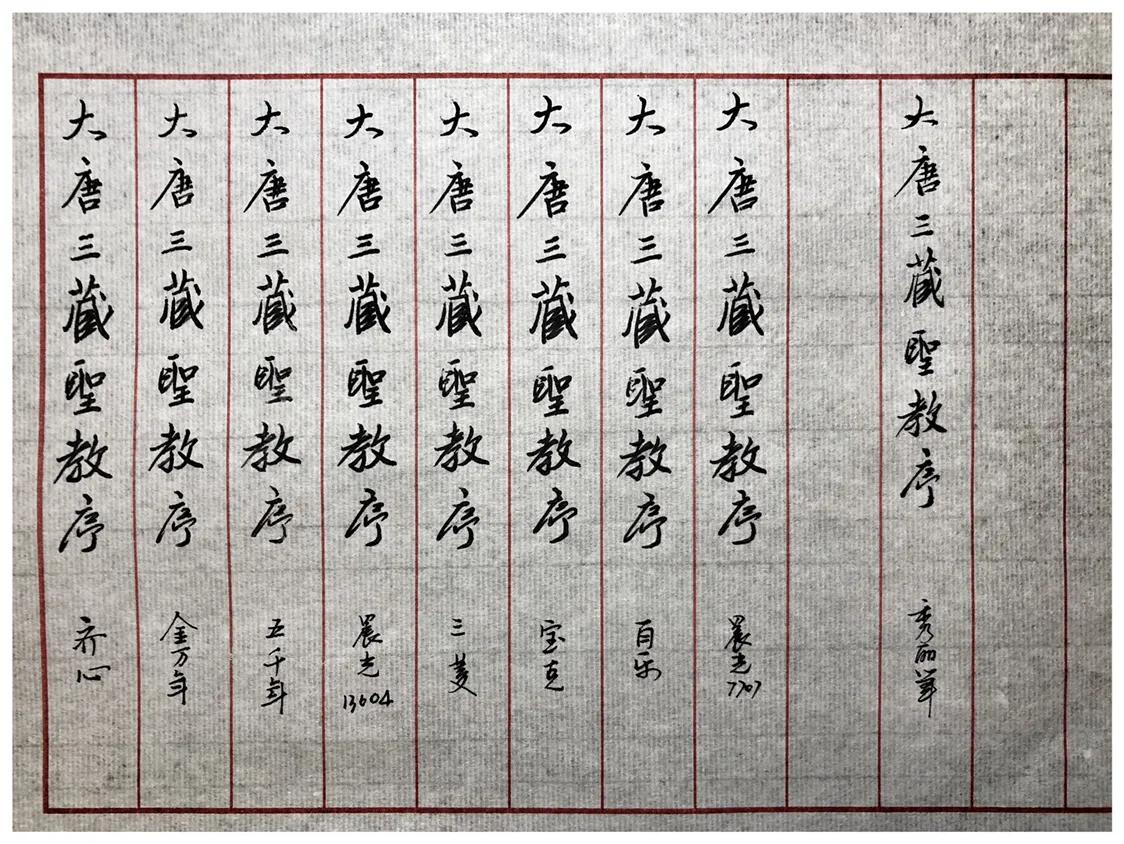 大唐三藏聖教序 秀丽筆
大唐三藏聖教序 晨光7707
大唐三藏聖教序 百乐
大唐三藏聖教序 宝克
大唐三藏聖教序 三菱
大唐三藏聖教序 晨光13604
大唐三藏聖教序 五千年
大唐三藏聖教序 金万年
大唐三藏聖教序 齐心